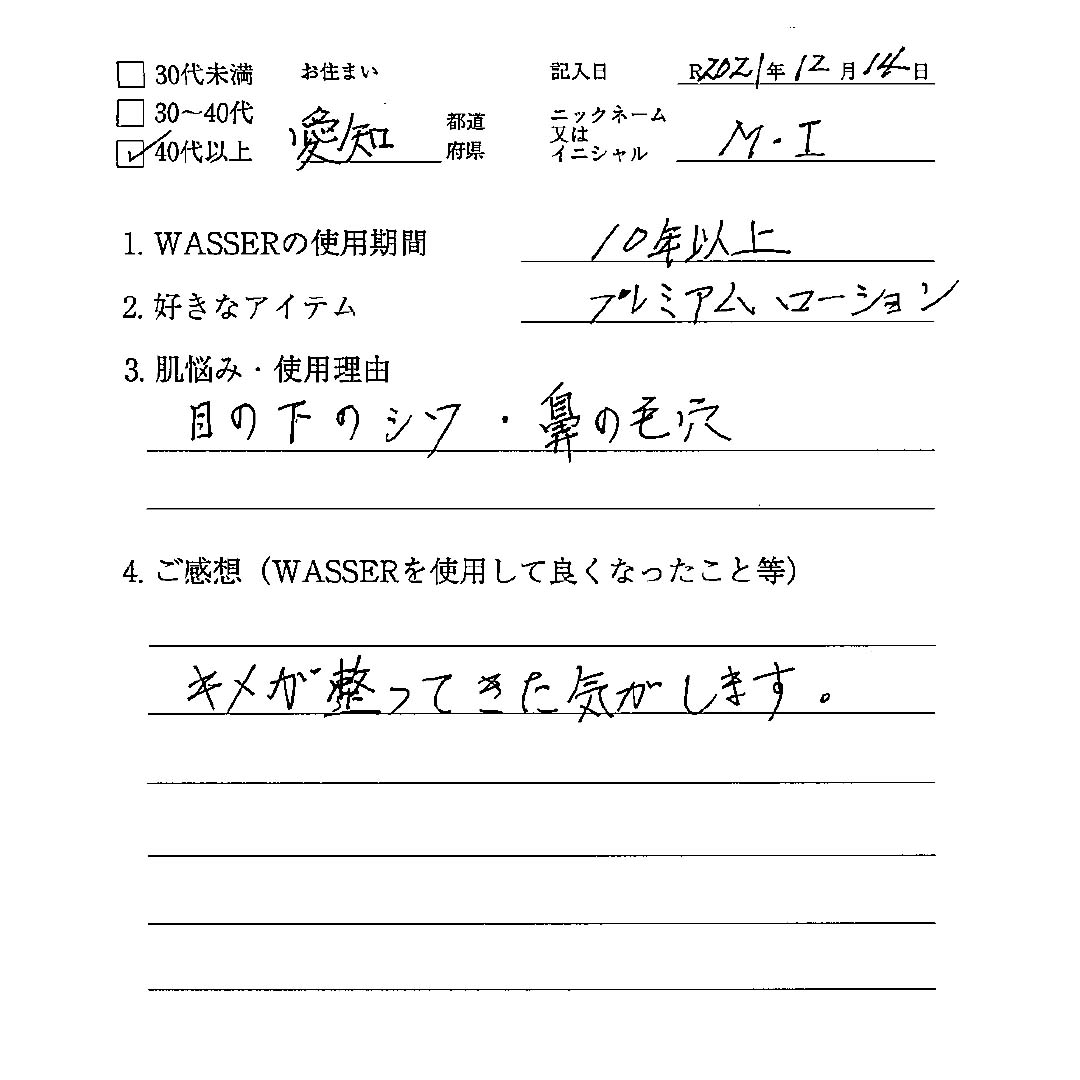 □ 30代未満 お住まい 記入日 R2021年12月14日
□ 30〜40代 愛知 都道府県 ニックネーム又はイニシャル M・I
☑ 40代以上
1. WASSERの使用期間 10年以上
2. 好きなアイテム プレミアム、ローション
3. 肌悩み・使用理由
目の下のシワ・鼻の毛穴
4. ご感想（WASSERを使用して良くなったこと等）
キメが整ってきた気がします。